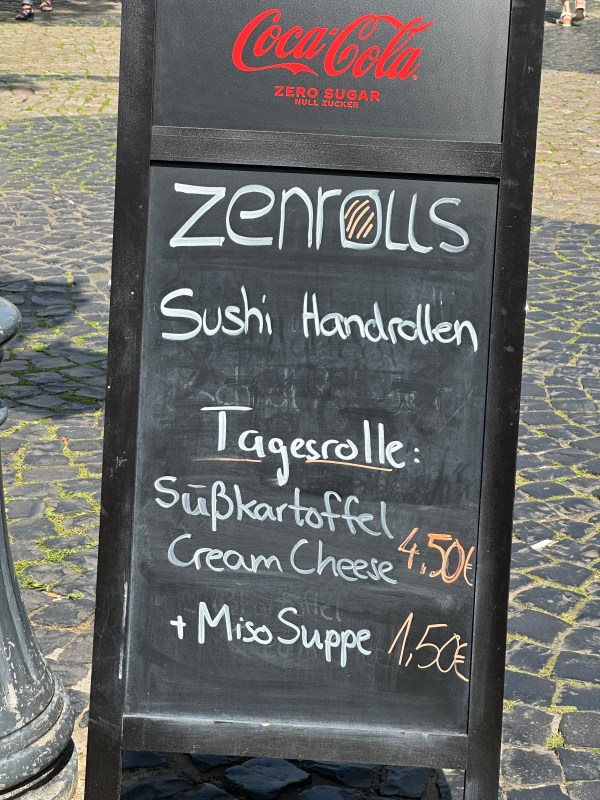 Coca-Cola
ZERO SUGAR
NULL ZUCKER
zenrolls
Sushi Handrollen
Tagesrolle:
Süßkartoffel
Cream Cheese 4,50€
+ Miso Suppe 1,50€